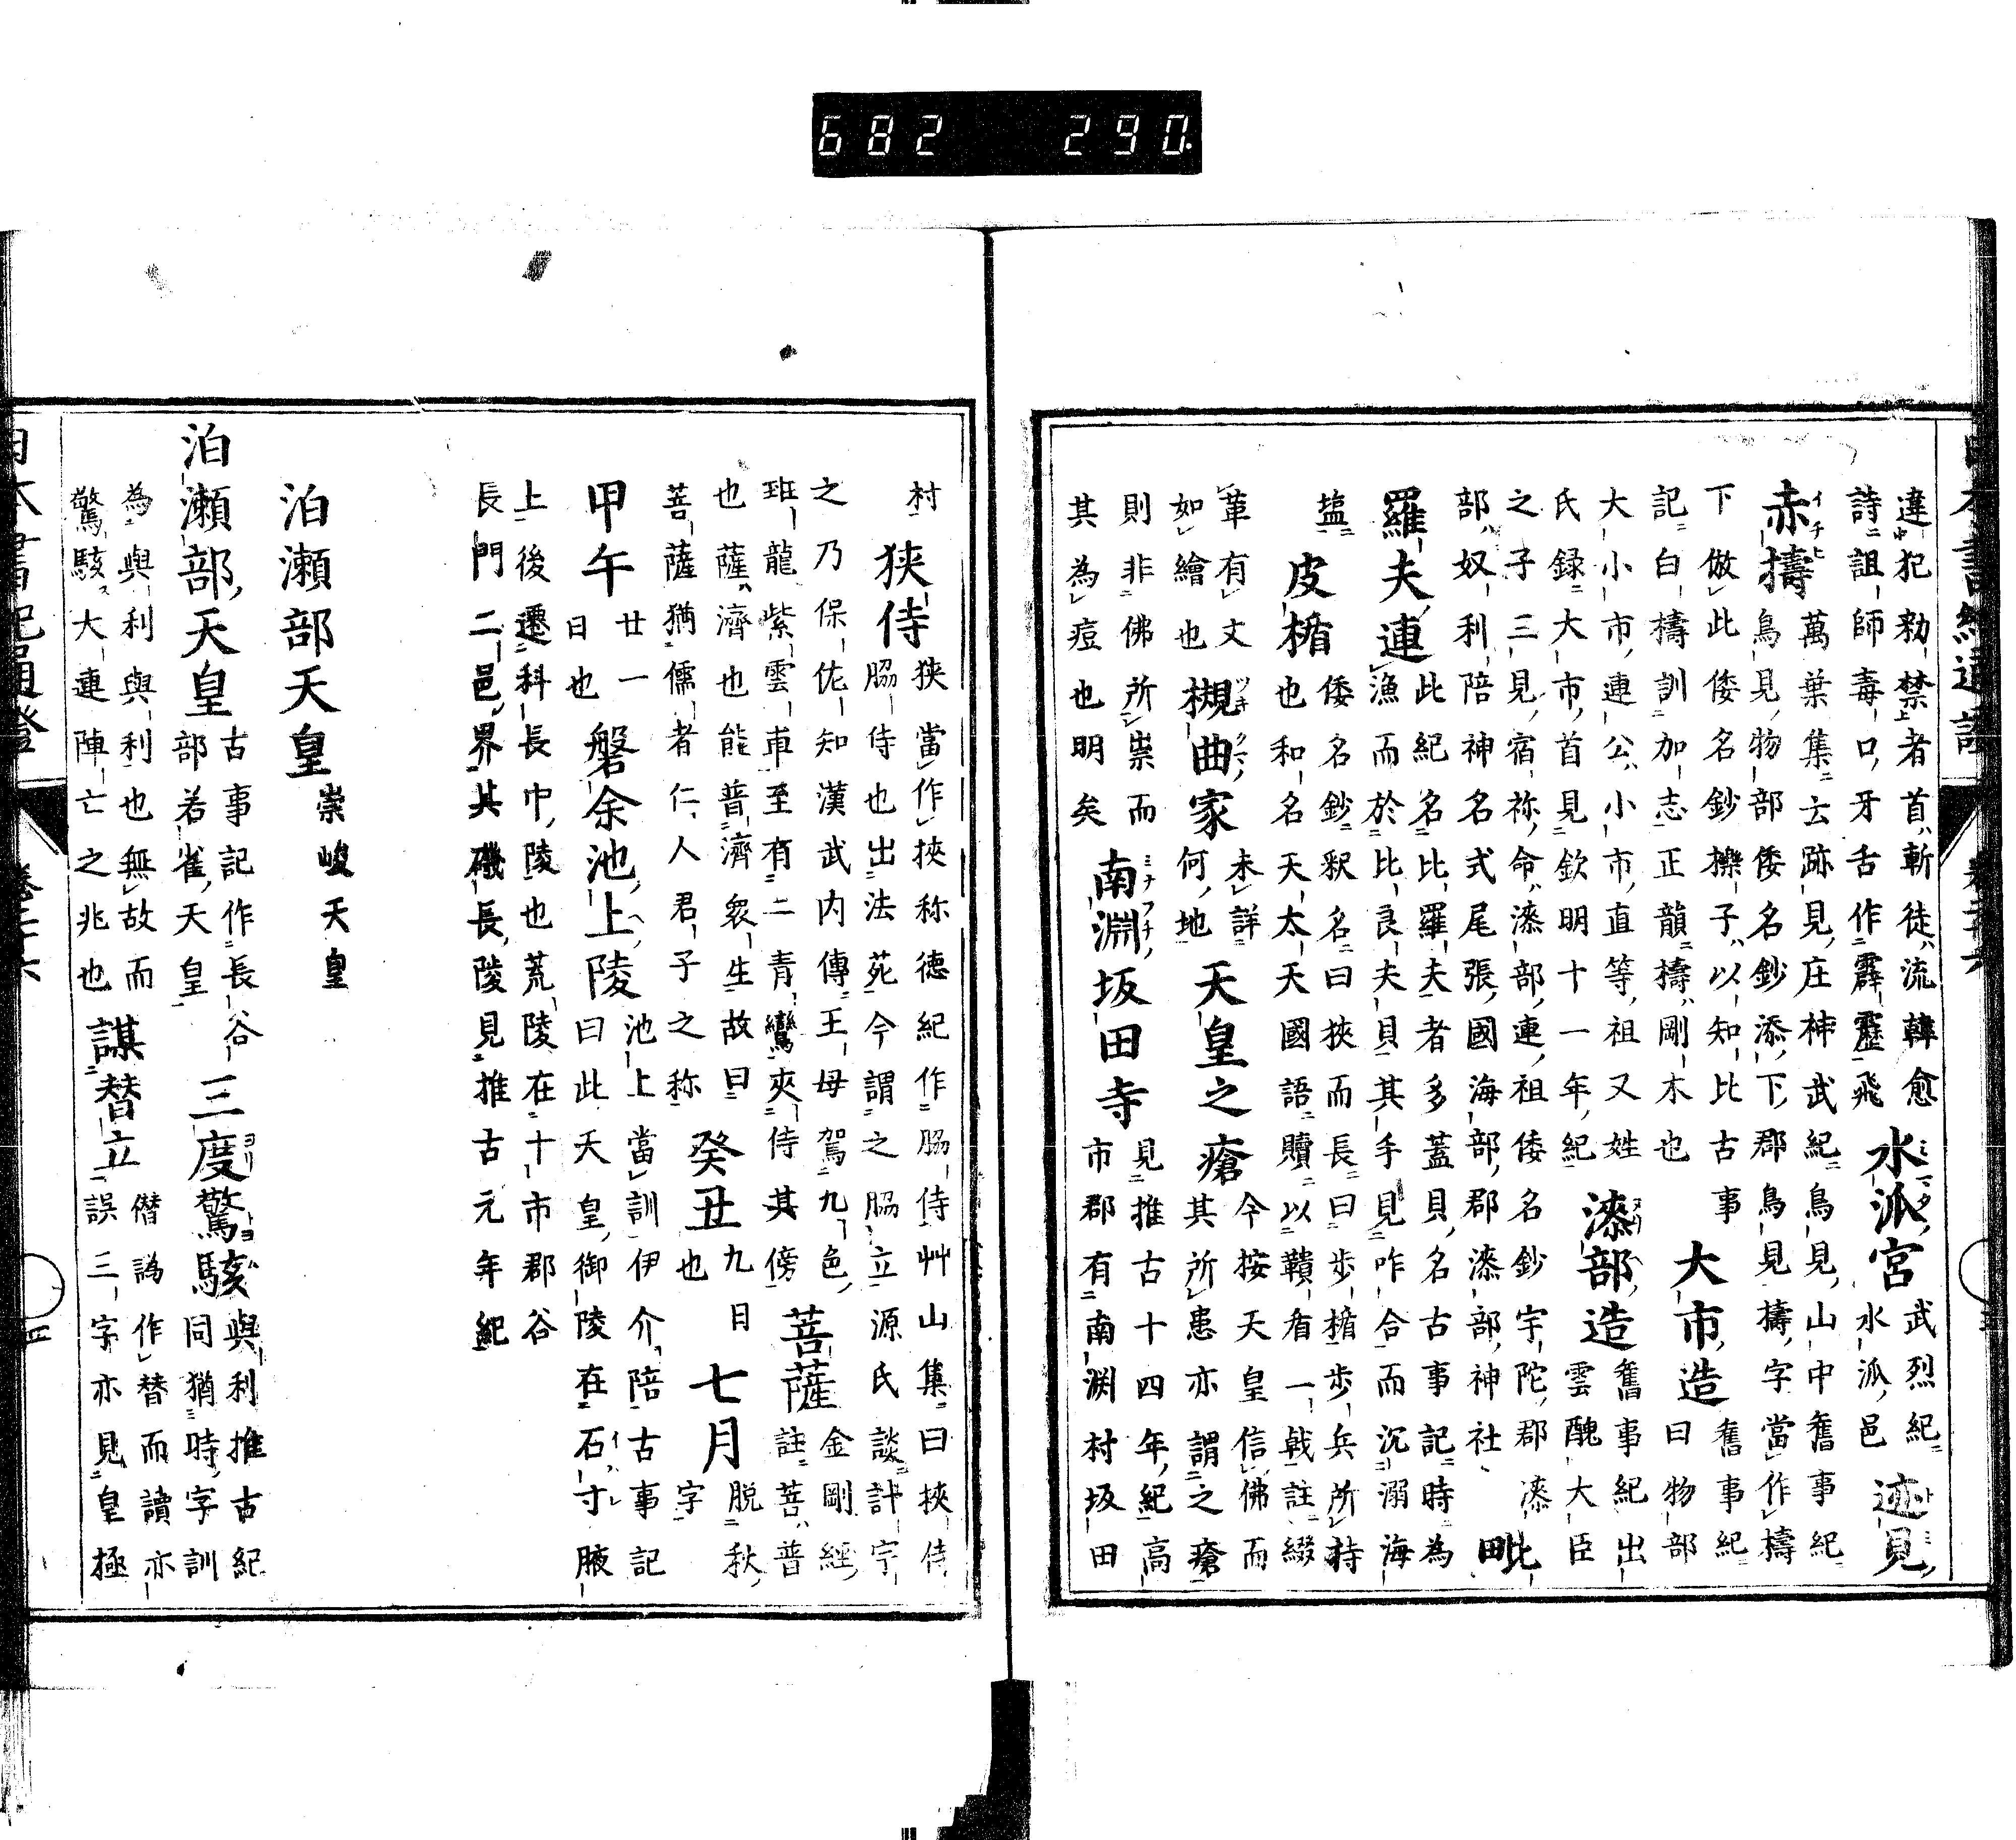 違犯勅禁者首斬徒流韓愈
詩詛師毒口牙舌作霹靂飛
水派宮
武烈紀
水派邑
迹見
赤檮
萬葉集云跡見庄神武紀鳥見山中舊事紀
鳥見物部倭名鈔添下郡鳥見檮字當作檮
下倣此倭名鈔擽子以知比古事
記白檮訓加志正韻檮剛木也
大市造
舊事紀
曰物部
大小市連公小市直等祖又姓
氏録大市首見欽明十一年紀
漆部造
舊事紀出
雲醜大臣
之子三見宿祢命漆部連祖倭名鈔宇陀郡漆
部奴利陪神名式尾張國海部郡漆部神社
毗
羅夫連
此紀名比羅夫者多蓋貝名古事記時為
漁而於比良夫貝其手見咋合而沉溺海
塩
皮楯
倭名鈔釈名曰狹而長曰歩楯歩兵所持
也和名天太天國語贖以鞼盾一戟註綴
革有文
如繪也
槻曲家
未詳
何地
天皇之瘡
今按天皇信佛而
其所患亦謂之瘡
則非佛所祟而
其為痘也明矣
南淵坂田寺
見推古十四年紀高
市郡有南渕村坂田
村
狹侍
狹當作挾称徳紀作脇侍艸山集曰挾侍
脇侍也出法苑今謂之脇立源氏談計字
之乃保佐知漢武内傳王母駕九色
班龍紫雲車至有二青鸞夾侍其傍
菩薩
金剛經
註菩普
也薩濟也能普濟衆生故曰
菩薩猶儒者仁人君子之称
癸丑
九日
也
七月
脱秋
字
甲午
廿一
日也
磐余池上陵
池上當訓伊介陪古事記
曰此天皇御陵在石寸腋
上後遷科長中陵也荒陵在十市郡谷
長門二邑界其磯長陵見推古元年紀
泊瀬部天皇 崇峻天皇
泊瀬部天皇
古事記作長谷
部若雀天皇
三度驚駭
與利推古紀
同猶時字訓
為與利與利也無故而
驚駭大連陣亡之兆也
謀替立
僣譌作替而讀亦
誤三字亦見皇極